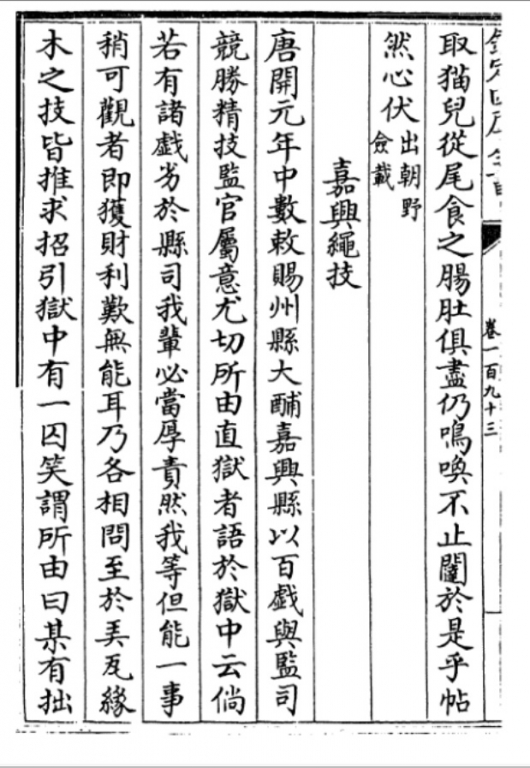 卷一百九十三
取猫兒從尾食之腸肚俱盡仍鳴喚不止闥於是乎帖
然心伏出朝野
僉載
嘉興繩技
唐開元年中數敕賜州縣大酺嘉興縣以百戯與監司
競勝精技監官屬意尤切所由直獄者語於獄中云倘
若有諸戯劣於縣司我輩必當厚責然我等但能一事
稍可觀者即獲財利歎無能耳乃各相問至於弄瓦緣
木之技皆推求招引獄中有一囚笑謂所由曰某有拙